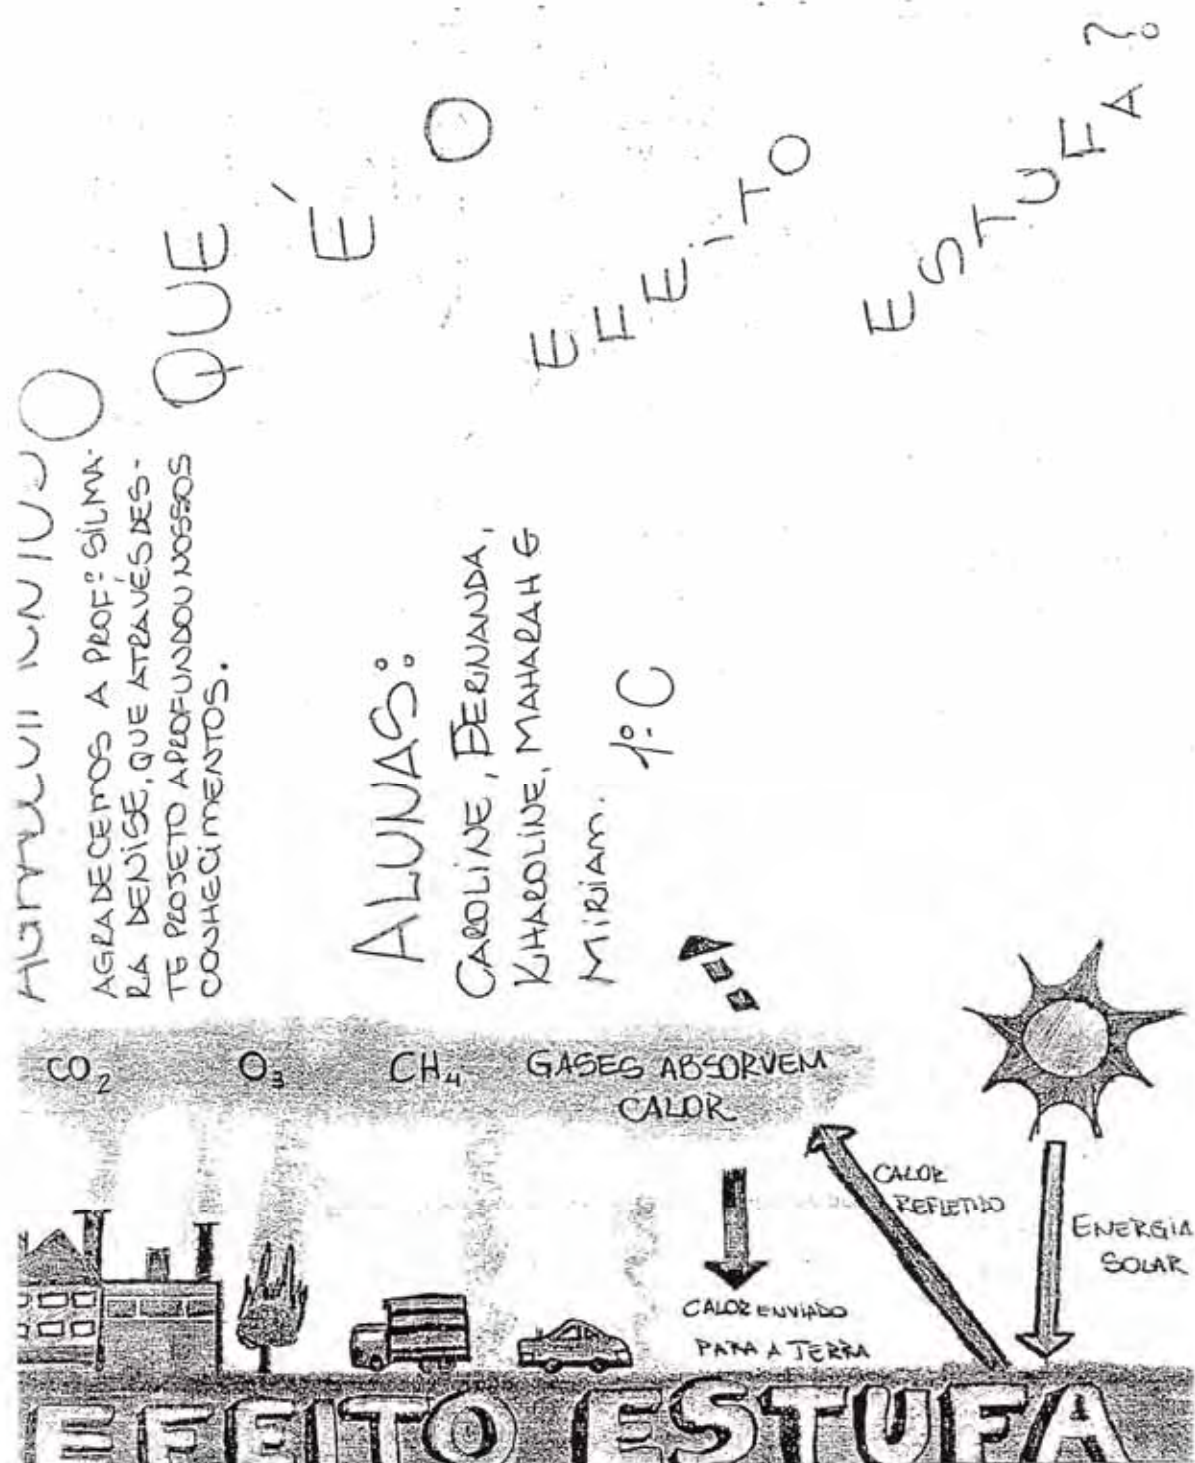 O QUE É O EFEITO ESTUFA?
AGRADECEMOS A PROFª SILMA-
RA DENISE, QUE ATRAVÉS DES-
TE PROJETO APROFUNDOU NOSSOS
CONHECIMENTOS.
ALUNAS:
CAROLINE, FERNANDA,
KHAROLINE, MAHARAH E
MIRIAM.
1º C
CO2 O3 CH4 GASES ABSORVEM
CALOR
CALOR
REFLETIDO
ENERGIA
SOLAR
CALOR ENVIADO
PARA A TERRA
EFEITO ESTUFA